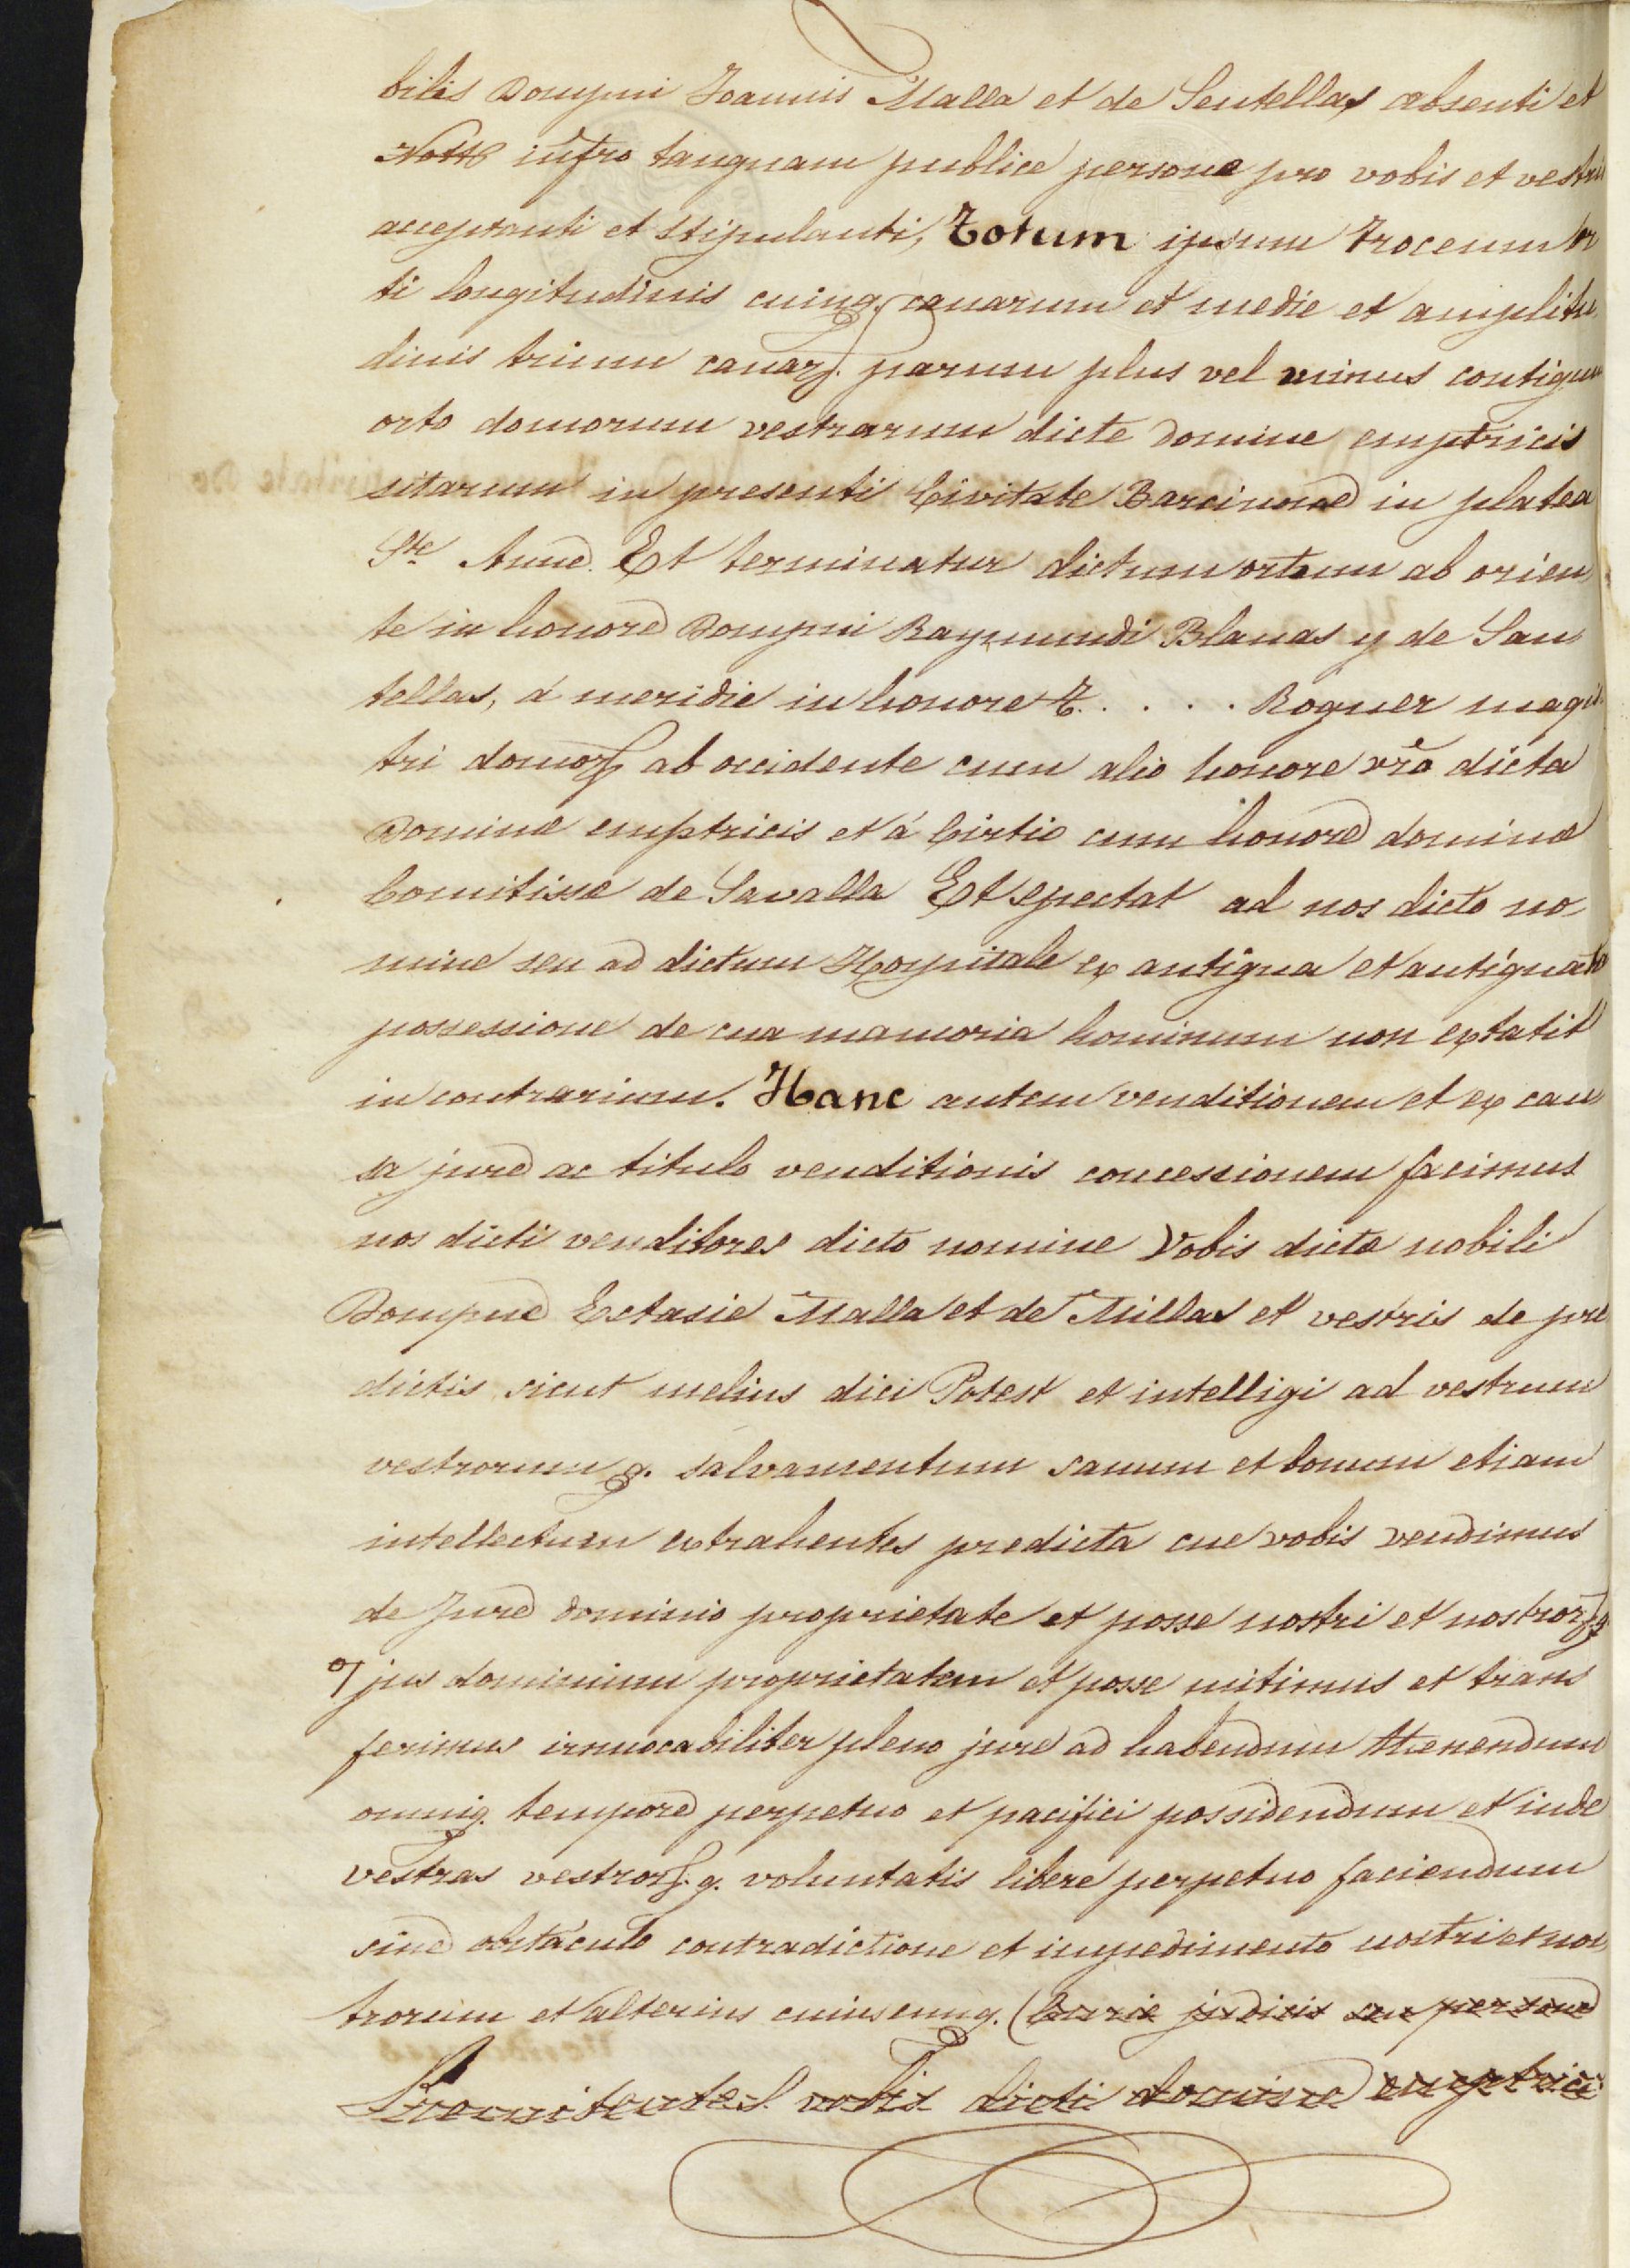 bilis Dompni Joannis Malla et de Sentellas absenti et
Nottô infrô tanquam publice persone pro vobis et vestris
acceptanti et stipulanti, Totum ipsum troceum or
ti longitudinis cuinq. canarum et medie et amplitu
dinis trium canarz. parum plus vel minus contiguu
orto domorum vestrarum dicte domine emptricis
sitarum in presenti Civitate Barcinone in platea
Ste Anne. Et terminatur dictum ortum ab orien
te in honore Dompni Raymundi Blanas y de San
tellas, á meridie in honore ...... Roguer magis
tri domorz ab occidente cum alio honore vrã dicta
Domine emptricis et á Cirtio cum honore domine
Comitisse de Savalla Et spectat ad nos dicto no
mine seu ad dictum Hospitale ex antigua et antiguata
possessione de cua mamoria hominum non extatit
in contrarium. Hanc autem venditionem et ex cau
sa jure ac titulo venditionis concessionem facimus
nos dicti venditores dicto nomine Vobis dicte nobili
Dompne Ectasie Malla et de Millas et vestris de pre
dictis sicut melius dici Potest et intelligi ad vestrum
vestrorum q. salvamentum sanum et bonum etiam
intellectum extrahentes predicta cue vobis vendimus
de Jure dominio proprietate et posse nostri et nostrorz
jus dominium proprietatem et posse mitimus et trans
ferimus irrnocabiliter pleno jure ad habendum tenendum
omniq. tempore perpetuo et pacifici possidendum et inde
vestras vestrorz. q. voluntatis libere perpetuo faciendum
sine obstáculo contradictione et impedimento nostri et nos
trorum et alterius cuiuscumq. (Curie judicis seu persone
Promitentes vobis dicti domine emptrici